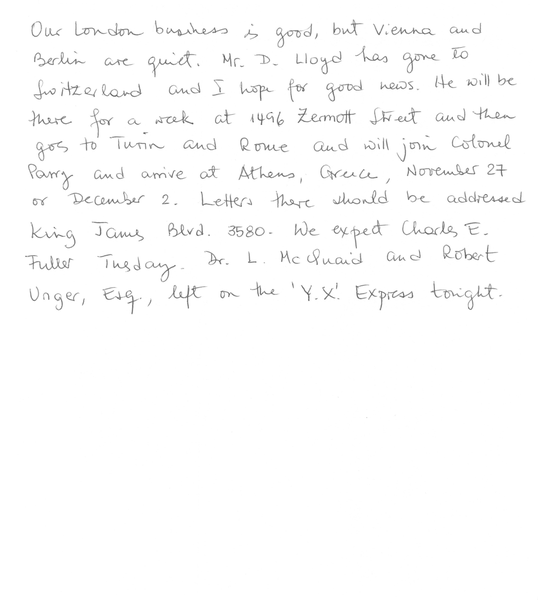 Our London business is good, but Vienna and
Berlin are quiet. Mr. D. Lloyd has gone to
Switzerland and I hope for good news. He will be
there for a week at 1496 Zermott Street and then
goes to Turin and Rome and will join Colonel
Parry and arrive at Athens, Greece, November 27
or December 2. Letters there should be addressed
King James Blvd. 3580. We expect Charles E.
Fuller Tuesday. Dr. L. McQuaid and Robert
Unger, Esq., left on the 'Y.X.' Express tonight.